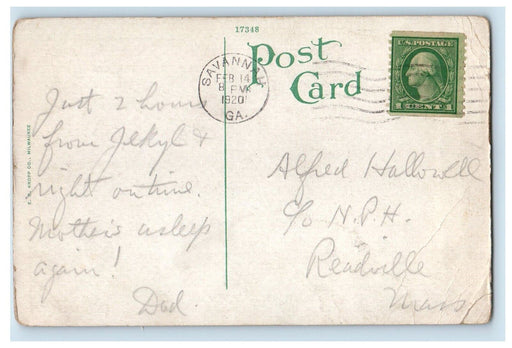 17348
Post
Card
SAVANNAH
FEB 14
8 PM
1920
GA.
U.S. POSTAGE
1 CENT 1
E. C. KROPP CO., MILWAUKEE
Just 2 hours
from Jekyl &
right on time.
Mother's asleep
again!
Dad.
Alfred Hallowell
c/o N.P.H.
Readville
Mass